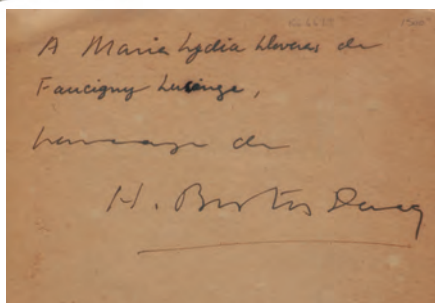 A Maria Lydia Lloveras de
Faucigny Lucinge,
homenaje de
H. Bustos Domecq